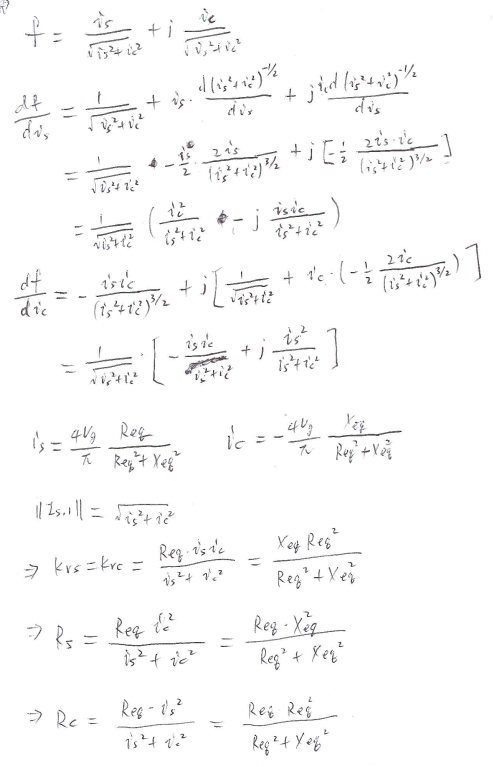 f = is/√(is²+ic²) + j ic/√(is²+ic²)
df/dis = 1/√(is²+ic²) + is · d(is²+ic²)^(-1/2)/dis + j ic d(is²+ic²)^(-1/2)/dis
= 1/√(is²+ic²) - is/2 · 2is/(is²+ic²)^(3/2) + j[-1/2 2is·ic/(is²+ic²)^(3/2)]
= 1/√(is²+ic²) (ic²/(is²+ic²) - j is ic/(is²+ic²))
df/dic = - is ic/(is²+ic²)^(3/2) + j[1/√(is²+ic²) + ic·(-1/2 2ic/(is²+ic²)^(3/2))]
= 1/√(is²+ic²) · [- is ic/(is²+ic²) + j is²/(is²+ic²)]
is = 4Vg/π Req/(Req²+Xeq²) ic = - 4Vg/π Xeq/(Req²+Xeq²)
||Is,1|| = √(is²+ic²)
⇒ krs = krc = Req·is ic/(is²+ic²) = Xeq Req²/(Req²+Xeq²)
⇒ Rs = Req ic²/(is²+ic²) = Req·Xeq²/(Req²+Xeq²)
⇒ Rc = Req - is²/(is²+ic²) = Req Req²/(Req²+Xeq²)